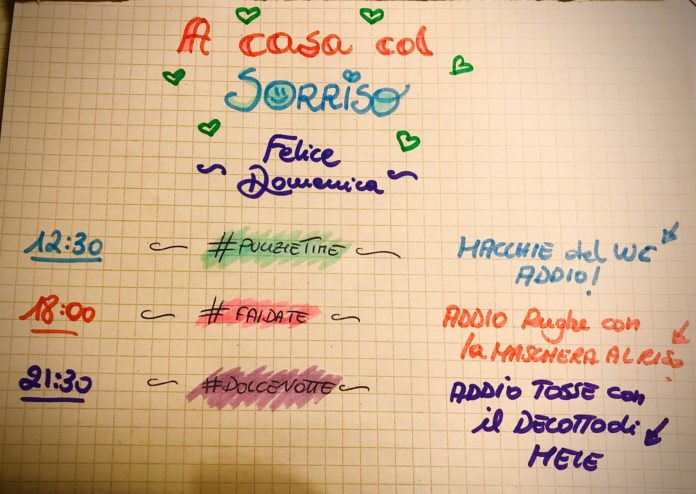 A casa col
SORRISO
Felice
Domenica
12:30 #PULIZIETIME MACCHIE del WC
ADDIO!
18:00 #FAIDATE ADDIO Rughe con
la MASCHERA AL RISO
21:30 #DOLCENOTTE ADDIO TOSSE con
il DECOTTO di
MELE